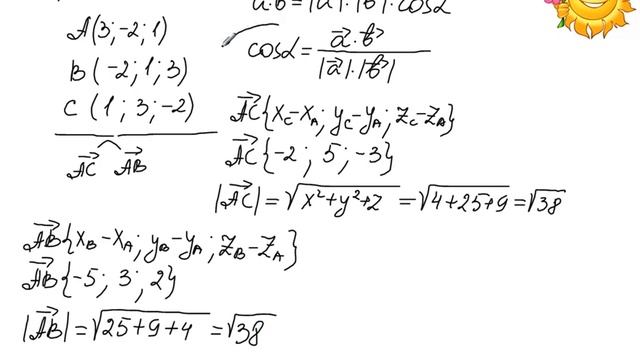 a·b = |a|·|b|·cosα
A(3; -2; 1)
B(-2; 1; 3)
C(1; 3; -2)
AC⃗ AB⃗
cosα = a⃗·b⃗ / |a⃗|·|b⃗|
AC⃗{x_C-x_A; y_C-y_A; z_C-z_A}
AC⃗{-2; 5; -3}
|AC⃗| = √x²+y²+z = √4+25+9 = √38
AB⃗{x_B-x_A; y_B-y_A; z_B-z_A}
AB⃗{-5; 3; 2}
|AB⃗| = √25+9+4 = √38